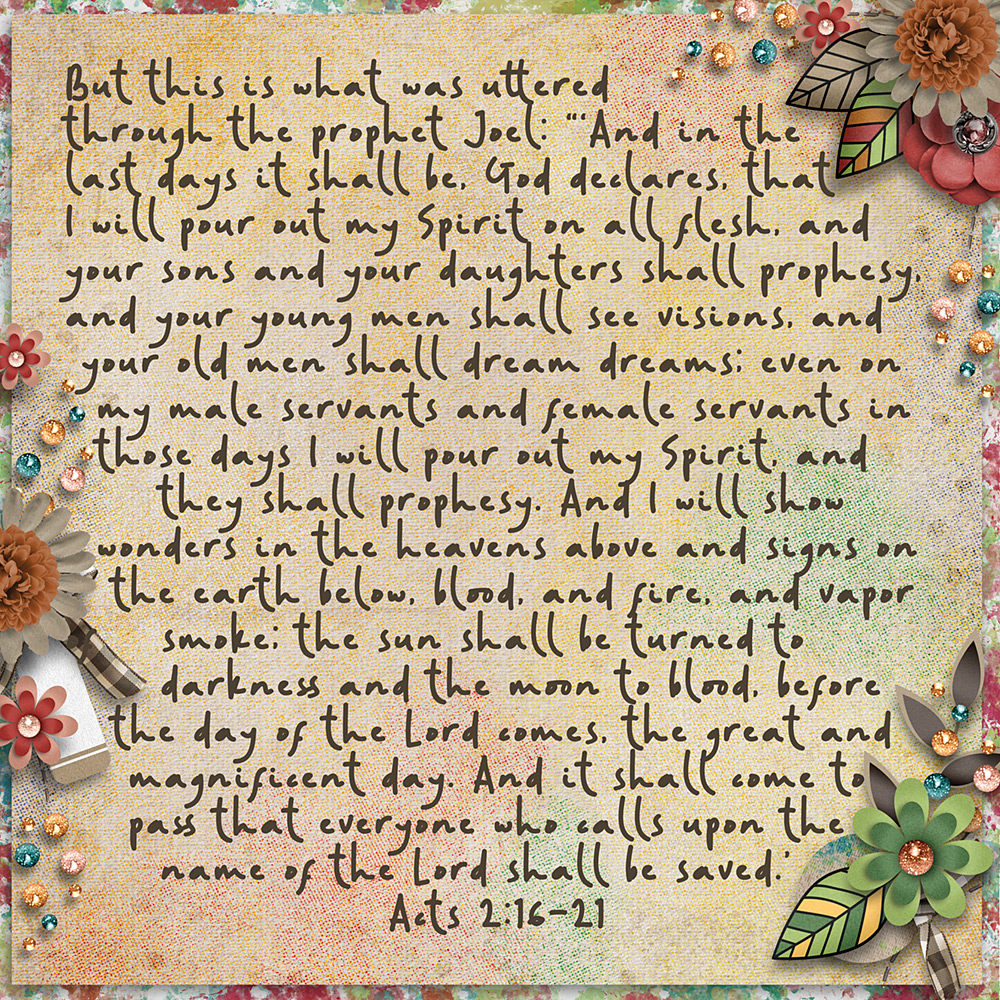 But this is what was uttered
through the prophet Joel: “‘And in the
last days it shall be, God declares, that
I will pour out my Spirit on all flesh, and
your sons and your daughters shall prophesy,
and your young men shall see visions, and
your old men shall dream dreams; even on
my male servants and female servants in
those days I will pour out my Spirit, and
they shall prophesy. And I will show
wonders in the heavens above and signs on
the earth below, blood, and fire, and vapor
smoke; the sun shall be turned to
darkness and the moon to blood, before
the day of the Lord comes, the great and
magnificent day. And it shall come to
pass that everyone who calls upon the
name of the Lord shall be saved.’
Acts 2:16-21